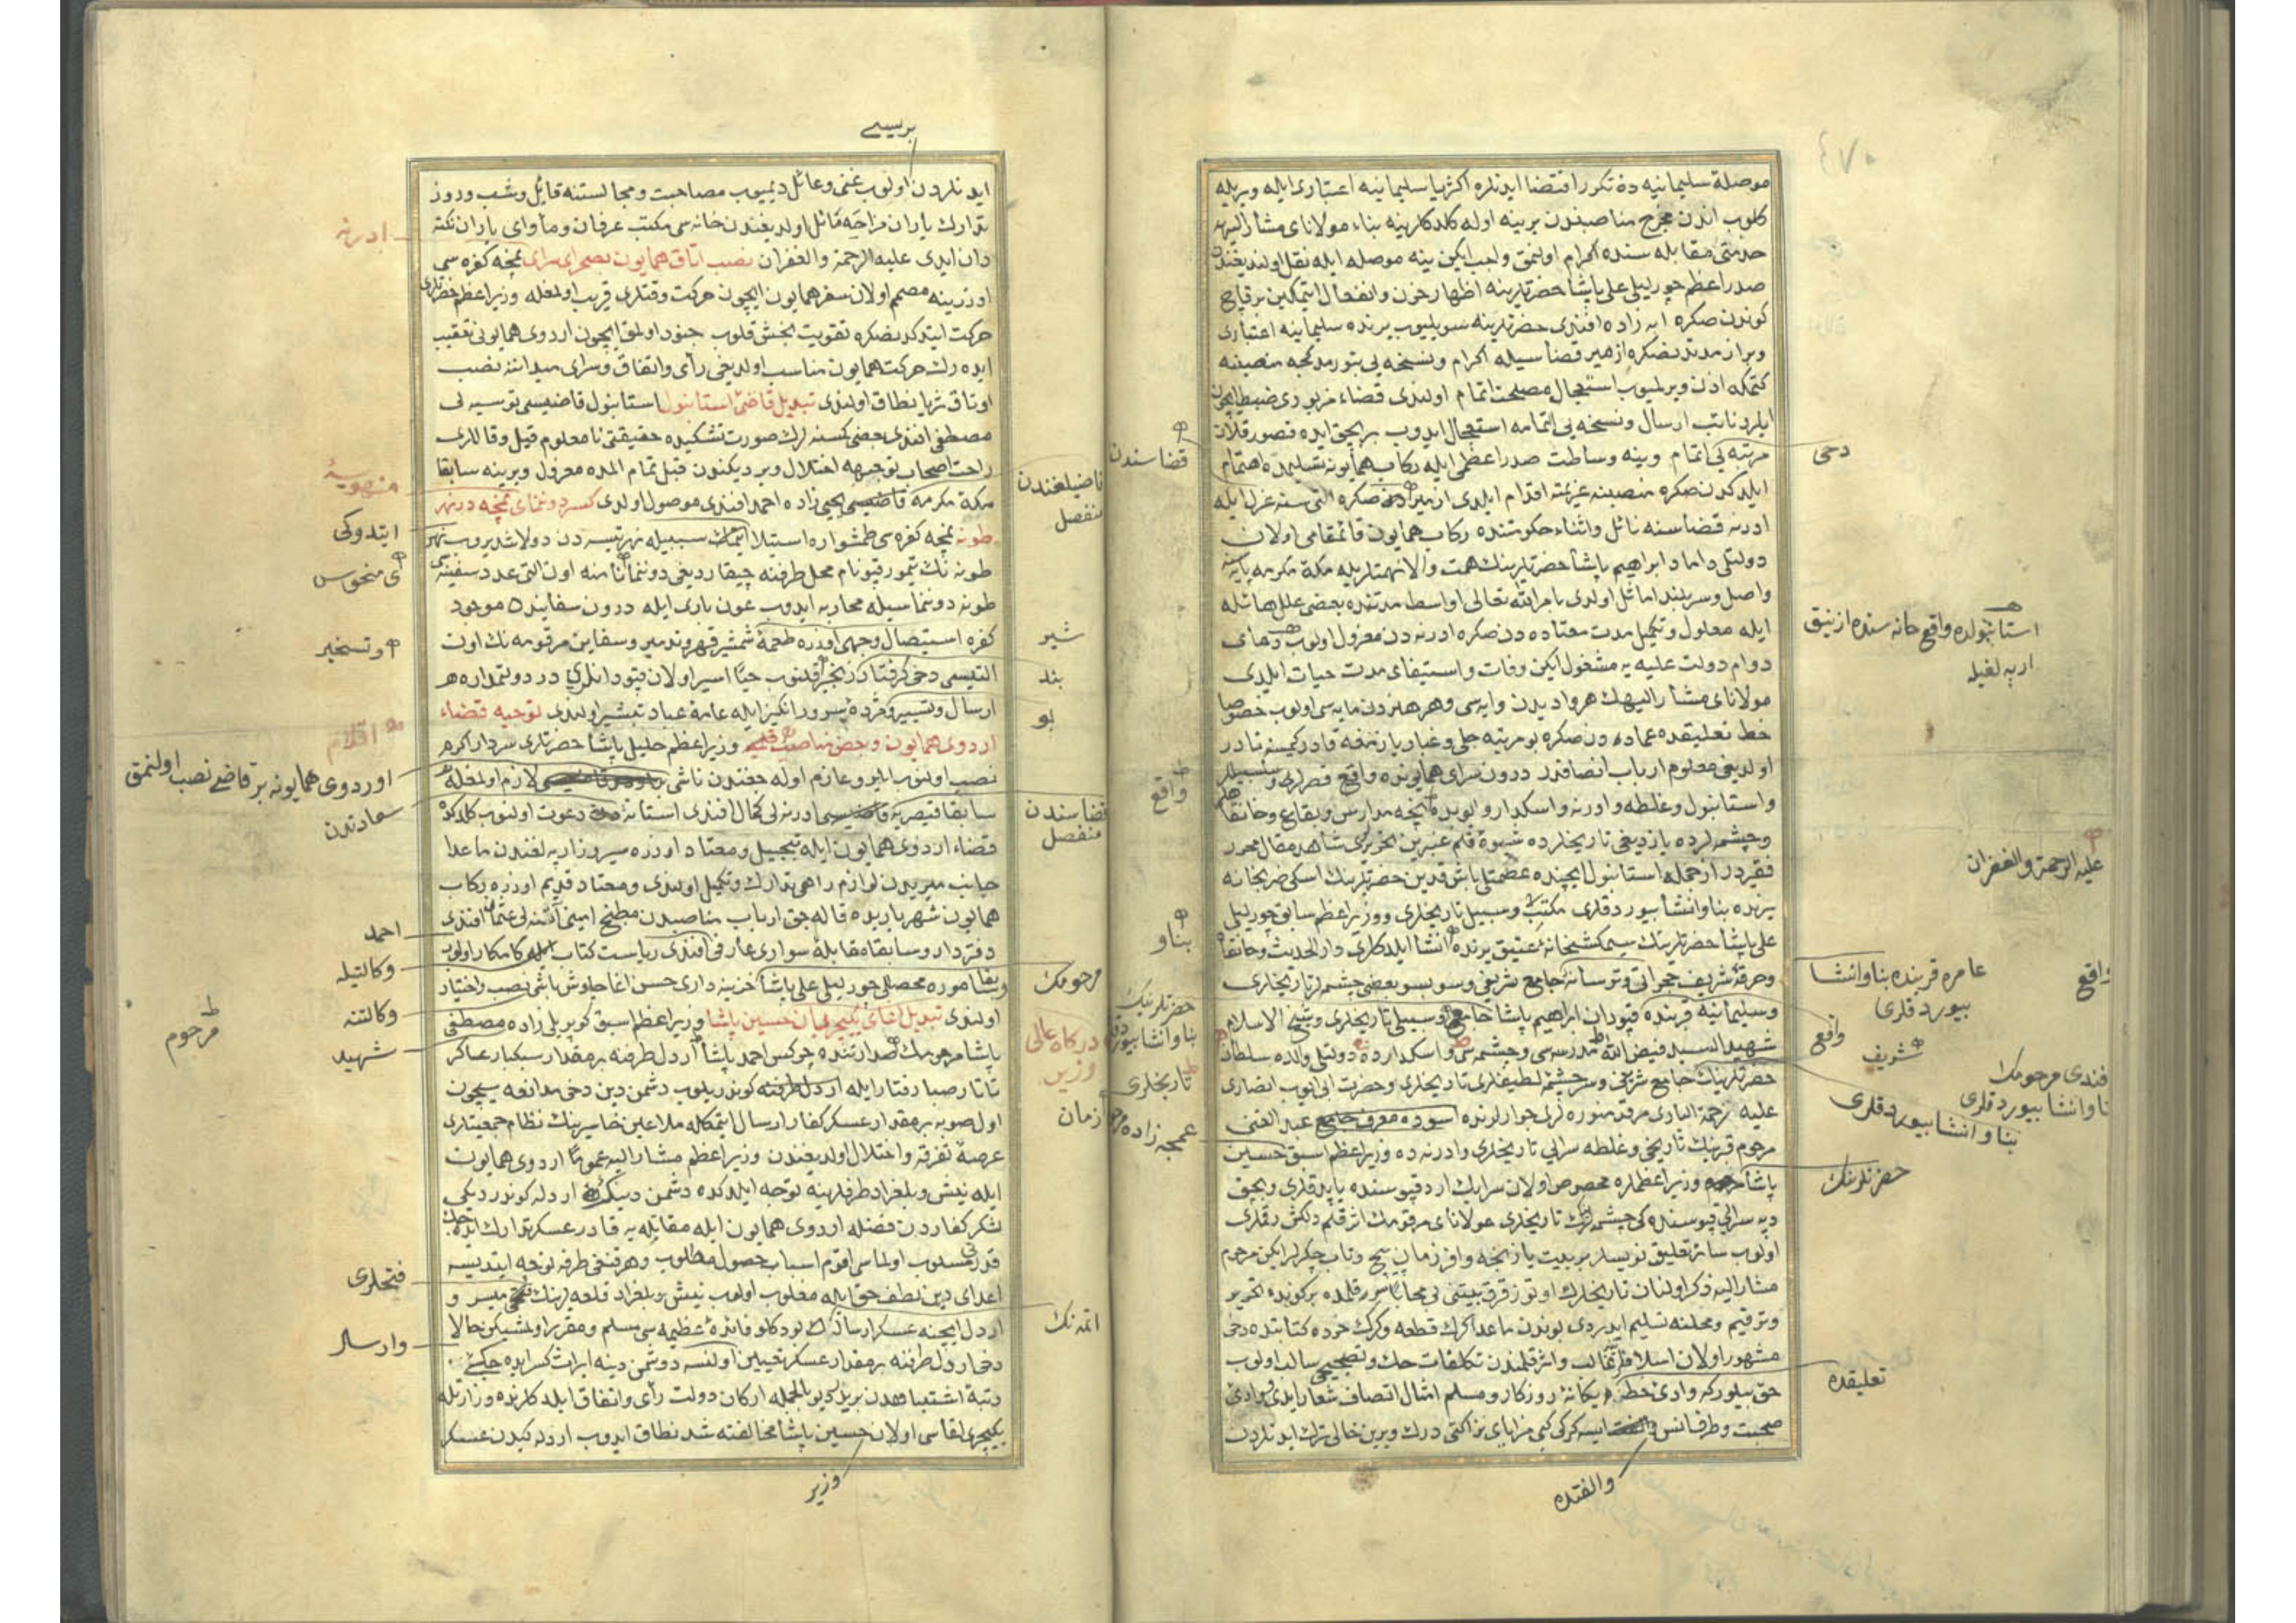 موصلۀ سلیمانیه ده تکرر اقتضا ایدنلره اکثریا سلیمانیه اعتباری ایله ویریله
کلوب اندن مخرج مناصبندن برینه اوله کلدکلرینه بناء مولانای مشار الیهه
خدمتی مقابله سنده اکرام اولنمق واجب ایکن ینه موصله ایله نقل اولندیغندن
صدراعظم چورلیلی علی پاشا حضرتلرینه اظهار حزن وانفعال ایتمکین برقاچ
کوندن صکره ابه زاده افندی حضرتلرینه سویلیوب یرنده سلیمانیه اعتباری
وبر از مدتدنصکره ازمیر قضاسیله اکرام ونسخه یی بتورمدکجه منصبنه
کتمکه اذن ویرلمیوب استعجال مصلحت اتمام اولندی قضاء مزبوری ضبط ایچون
ایلرو نائب ارسال ونسخه یی اتمامه استعجال ایدوب
مرتبه یی اتمام وینه وساطت صدراعظمی ایله رکاب همایونه تسلیمده اهتمام
دخی
قضاسندن
ایلدکدن صکره منصبنه عزیمته اقدام ایلدی ازمیردن صکره التی سنه عزل ایله
ادرنه قضاسنه نائل واثناء حکومتنده رکاب همایون قائمقامی اولان
دولتلی داماد ابراهیم پاشا حضرتلرینك همت والانهمتلریله مکۀ مکرمه پایه سنه
واصل وسربلند اماثل اولدی بامر الله تعالی اواسط مدتنده بعضی علل هائله
ایله معلول وتکمیل مدت معتاده دن صکره ادرنه دن معزول اولوب دعای
استانبولده واقع خانه سنده ازنیق
اربه لغیله
دوام دولت علیه یه مشغول ایکن وفات واستیفای مدت حیات ایلدی
علیه الرحمة والغفران
مولانای مشار الیهك هر وادیدن وایه سی وهر هنردن مایه سی اولوب خصوصا
خط تعلیقده عماددن صکره بو مرتبه جلی وغبار یازمغه قادر کیمسه نادر
اولدیغی معلوم ارباب انصافدر درون سرای همایونده واقع قصرلری
واقع
واستانبول وغلطه وادرنه واسکدار وابویده نیجه مدارس وبقاع وخانقاه
وچشمه لرده یازدیغی تاریخلرده شیوۀ قلم عنبرین تحریری شاهد مقال محرر
فقیردر ازجمله استانبول ایچنده عظمتلی پاشا قدین حضرتلرینك اسکی ضربخانه
یرنده بنا وانشا بیوردقلری مکتب وسبیل تاریخلری ووزیراعظم سابق چورلیلی
علی پاشا حضرتلرینك سیمکشخانۀ عتیق یرنده انشا ایلدکلری دار الحدیث وخانقاه
بنا و
وخرقۀ شریف جامع شریفی وسوبسو بعضی چشمه لر تاریخلری
عامره قربنده بنا وانشا
بیوردقلری
واقع
وسلیمانیه قربنده قپودان ابراهیم پاشا جامع وسبیلی تاریخلری وشیخ الاسلام
حضرتلرینك
بنا وانشا بیوردقلری
شهید السید فیض الله مدرسه سی وچشمه سی واسکدارده دولتلی والده سلطان
واقع
شریف
افندی مرحومك
حضرتلرینك جامع شریفی وسر چشمۀ لطیفلری تاریخلری وحضرت ابی ایوب انصاری
تاریخلری
بنا وانشا بیوردقلری
علیه رحمة الباری مرقد منوره لری جوارلرنده عبد الغنی
مرحوم قبرینك تاریخی وغلطه سرایی تاریخلری وادرنه ده وزیراعظم اسبق حسین
عمجه زاده مرحوم
پاشا وزیراعظملره مخصوص اولان سرایك اردقپوسنده یاپدقلری
حضرتلرینك
دیه سرایی قپوسنده کی چشمه لرك تاریخلری مولانای مرقومك اثر قلم دلکش رقملری
اولوب سائر تعلیق نویسلر بر بیت یازنجه وافر زمان پیچ وتاب چکرلر ایکن مرحوم
مشار الیه ذکر اولنان تاریخلرك اوتوز قرق بیتنی بی محابا سر قلمده بر کونده تحریر
وترقیم ومحلنه تسلیم ایدردی بوندن ماعدا کرك قطعه وکرك خرده کتابتده دخی
مشهور اولان اسلافه غالب واثر قلمندن تکلفات حك وتصحیحی سالب اولوب
حق بیلورکه وادئ خطده یکانۀ روزکار ومسلم امثال اتصاف شعار ایدی ووادئ
تعلیقده
صحبت وظرافتس ایسه کرکی کبی مزایای نزاکتی درك وبرین خالی ترك ایدنلردن
والفتده
بریسی
ایدنلردن اولوب غنی وعائل دیمیوب مصاحبت ومجالستنه قایل وشب وروز
تدارك یاران مزاجه مائل اولدیغندن خانه سی مکتب عرفان ومأوای یاران نکته
ادرنه
دان ایدی علیه الرحمة والغفران نصب اتاق همایون بصحرای سرای نمچه کفره سی
اوزرینه مصمم اولان سفر همایون ایچون حرکت وقتلری قریب اولمغله وزیراعظم حضرتلری
حرکت ایتدکدنصکره تقویت بخش قلوب جنود اولمق ایچون اردوی همایونی تعقیب
ایدەرك حرکت همایون مناسب اولدیغی رأی واتفاق وسرای میداننه نصب
اوتاق ثریا نطاق اولندی تبدیل قاضئ استانبول استانبول قاضیسی توسیه لی
مصطفی افندی بعضی کسنه لرك صورت تشکیده حقیقتی نامعلوم قیل وقاللری
راحت اصحاب توجیهه اختلال ویردیکندن قبل تمام المده معزول ویرینه سابقا
مکۀ مکرمه قاضیسی یحیی زاده احمد افندی موصول اولدی کسر دونمای نمچه در نهر
قاضیلغندن
منفصل
منهویۀ
طونه نمچه کفره سی طمشواره استیلا ایتمك سببیله نهر تیسه دن دولاشدیروب نهر
ایتدوکی
طونه نك تیمورقپو نام محل طرفنه چیقاردیغی دوننمانامنه اون التی عدد سفینه یی
ی منحوس
طونه دوننماسیله محاربه ایدوب عون باری ایله درون سفاینده موجود
کفره استیصال وجهی اوزره طعمۀ شمشیر قهر وتدمیر وسفاین مرقومه نك اون
شیر
وتسخیر
التیسی دخی کرفتار زنجیر قلنوب حیا اسیر اولان قپودانلری در دولتمداره
بند
ارسال وتسییر ومژدۀ سرور انکیز ایله عامۀ عباد تبشیر اولندی توجیه قضاء
بو
اردوی همایون وبعض مناصب وزیراعظم خلیل پاشا حضرتلری سردار اکرم
اقلام
نصب اولنوب ایلرو عازم اوله جغندن ناشی لازم اولمغله
اوردوی همایونه بر قاضی نصب اولنمق
سابقا قیصریه ادرنه لی کمال افندی استانه دعوت اولنوب کلدکده
قضاسندن
منفصل
سعادتدن
قضاء اردوی همایون ایله تبجیل ومعتاد اوزره سیروز اربه لغندن ماعدا
جانب میریدن لوازم راهی تدارك وتکمیل اولندی ومعتاد قدیم اوزره رکاب
همایون شهریاریده قاله جق ارباب مناصبدن مطبخ امینی عثمان افندی
احمد
دفتردار وسابقا مقابلۀ سواری عارفی افندی ریاست کتاب ایله کامکار اولوب
وکالتیله
وسابقا موره محصلی چورلیلی علی پاشا خزینه داری حسن اغا چاوش باشی نصب واختیار
مرحومك
وکالتنه
اولندی تبدیل اغای یکیچریان حسین پاشا وزیراعظم اسبق کوپریلی زاده مصطفی
درکاه عالی
شهید
مرحوم
پاشا مرحومك صدارتنده چرکس احمد پاشا اردل طرفنه بر مقدار سبکبار عساکر
وزیر
تاتار صبا رفتار ایله اردل طرفنه کوندریلوب دشمن دین دخی مدافعه سیچون
زمان
اول صوبه بر مقدار عسکر کفار ارسال ایتمکله ملاعین خاسرینك نظام جمعیتلری
عرصۀ تفرقه واختلال اولدیغندن وزیراعظم مشار الیه عموما اردوی همایون
ایله نیش وبلغراد طرفلرینه توجه ایلدکده دشمن دینك اردله کوندردیکی
لشکر کفاردن فضله اردوی همایون ایله مقابله یه قادر عسکر تدارك ایده جك
قدرتی مسلوب اولماسی اقوم اسباب حصول مطلوب وهر قنغی طرفه توجه ایتدیسه
فتحلری
اعدای دین لطف حق ایله مغلوب اولوب نیش وبلغراد قلعه لرینك فتحی میسر و
اردل ایچنه عسکر ارسالنك بودکلو فائدۀ عظیمه سی مسلم ومقرر اولمشیکن حالا
اتمه نك
دخی اردل طرفنه بر مقدار عسکر تعیین اولنسه دشمن دینه ایراث کسر ایده جکی
وارسال
رتبۀ اشتباهدن بریدر دیو بالجمله ارکان دولت رأی واتفاق ایلدکلرنده وزارتله
یکیچری اغاسی اولان حسین پاشا مخالفته شد نطاق ایدوب اردله کیدن عسکر
وزیر